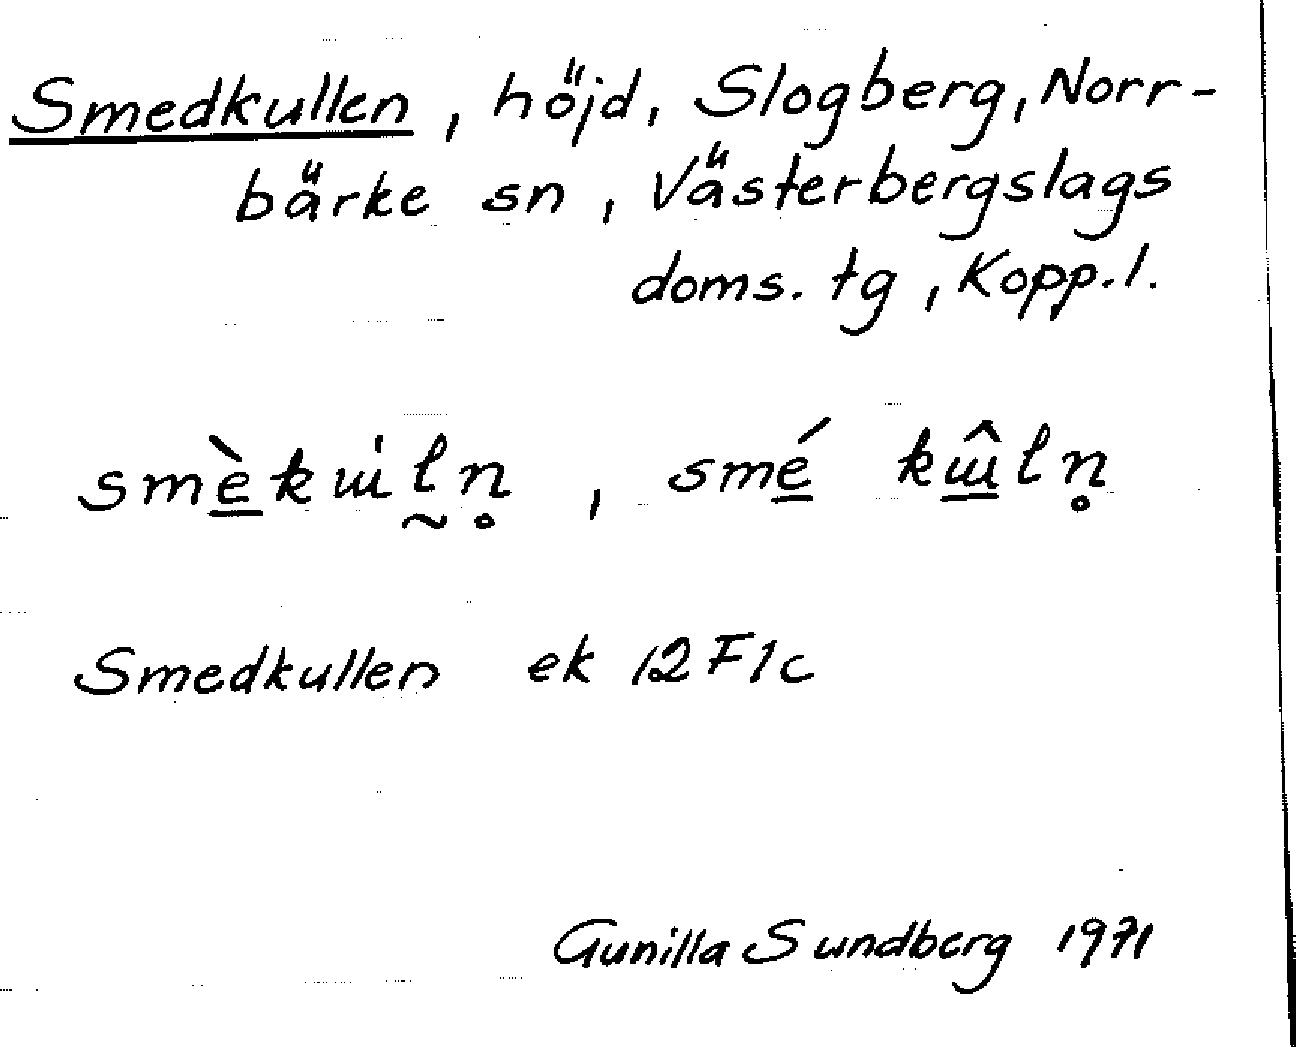 Smedkullen, höjd, Slogberg, Norr-
bärke sn, Västerbergslags
doms. tg, Kopp. l.
smè̲kɯ̍l̰n̥, smé̲ kɯ̲̂ln̥
Smedkullen ek 12F1c
Gunilla Sundberg 1971